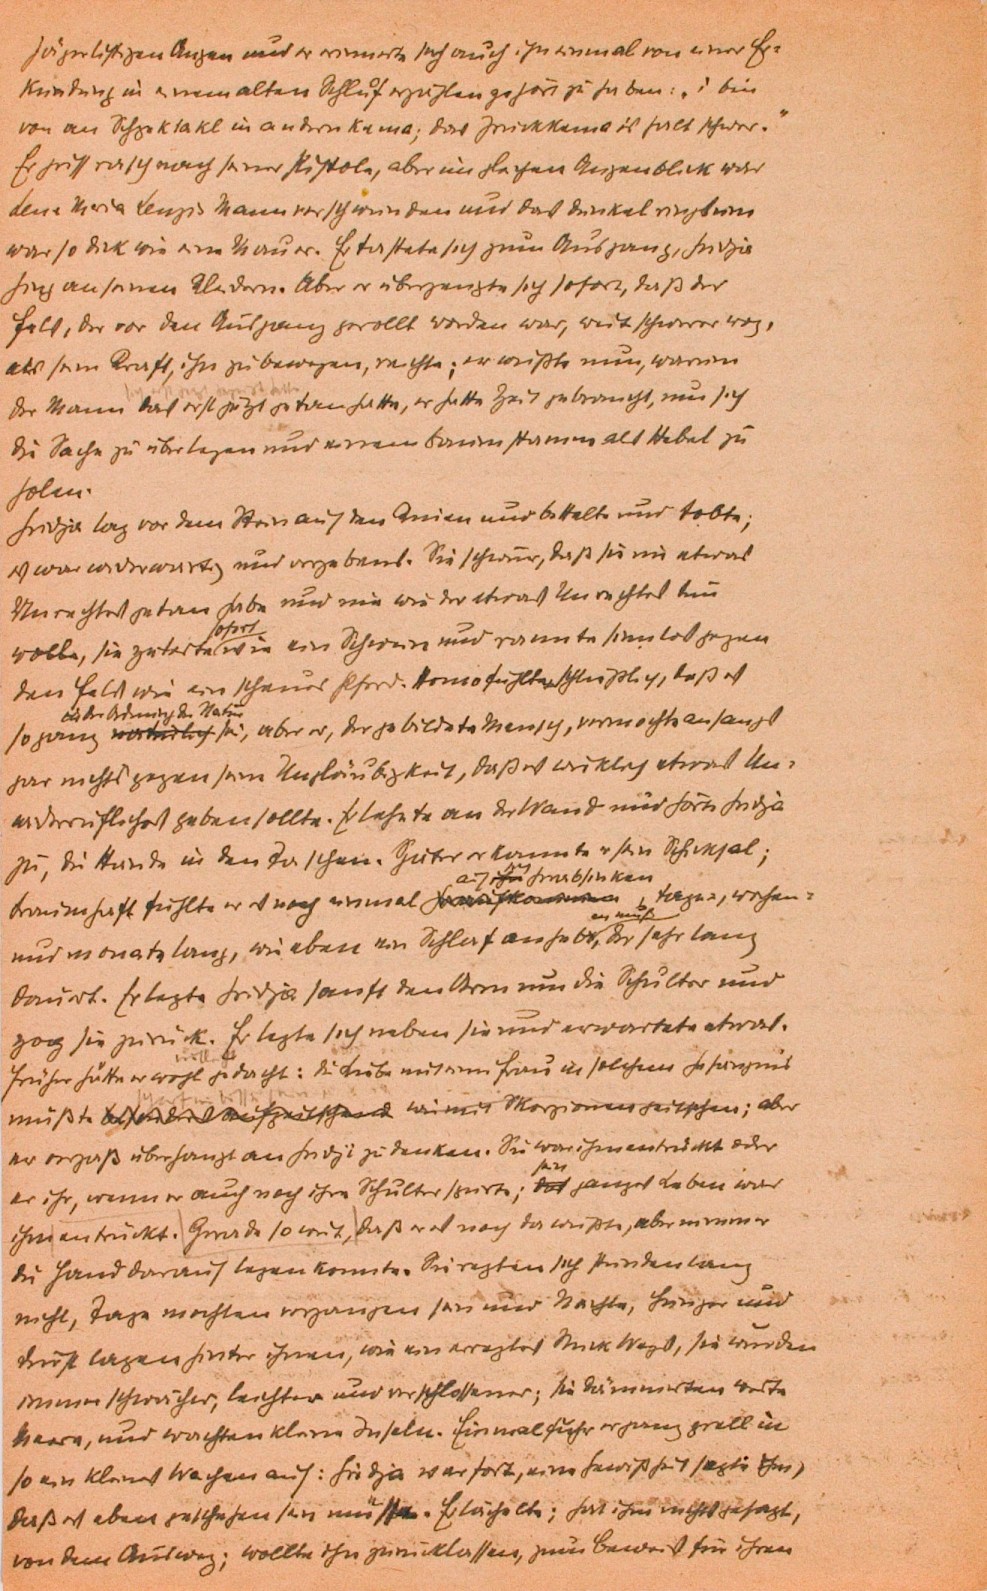 jägerlistigen Augen und er erinnerte sich auch ihn einmal von einer Er-
kundung in einem alten Schluf erzählen gehört zu haben: „i bin
von an Schpektakl in andern kema; das Zruckkema is halt schwer."
Er griff rasch nach seiner Pistole, aber im gleichen Augenblick war
Lene Maria Lenzis Mann verschwunden und das Dunkel ringsum
war so dick wie eine Mauer. Er tastete sich zum Ausgang, Gridja
hing an seinen Kleidern. Aber er überzeugte sich sofort, daß der
Fels, der vor den Ausgang gerollt worden war, weit schwerer wog,
als seine Kraft, ihn zu bewegen, reichte; er wußte nun, warum
der Mann das erst jetzt getan hatte, er hatte Zeit gebraucht, um sich
die Sache zu überlegen und einen Baumstamm als Hebel zu
holen.
Gridja lag vor dem Stein auf den Knien und bettelte und tobte;
es war widerwärtig und vergebens. Sie schwur, daß sie nie etwas
Unrechtes getan habe und nie wieder etwas Unrechtes tun
wolle, sie zeterte sofort wie ein Schwein und rannte sinnlos gegen
den Fels wie ein scheues Pferd. Homo fühlte schließlich, daß es
so ganz in der Ordnung der Natur sei, aber er, der gebildete Mensch, vermochte anfangs
gar nichts gegen seine Ungläubigkeit, daß es wirklich etwas Un-
widerrufliches geben sollte. Er lehnte an der Wand und hörte Gridja
zu, die Hände in den Taschen. Später erkannte er sein Schicksal;
traumhaft fühlte er es noch einmal auf ihn herabsinken tage-, wochen-
und monatelang, wie eben ein Schlaf anheben muß, der sehr lang
dauert. Er legte Gridja sanft den Arm um die Schulter und
zog sie zurück. Er legte sich neben sie und erwartete etwas.
Früher hätte er wohl vielleicht gedacht: die Liebe mit einer Frau in solchem Gefängnis
müßte wie mit Skorpionen peitschen; aber
er vergaß überhaupt an Gridja zu denken. Sie war ihm entrückt oder
er ihr, wenn er auch noch ihre Schulter spürte; sein ganzes Leben war
ihm entrückt. Gerade so weit, daß er es noch da wußte, aber nimmer
die Hand darauf legen konnte. Sie regten sich stundenlang
nicht, Tage mochten vergangen sein und Nächte, Hunger und
Durst lagen hinter ihnen, wie ein erregtes Stück Wegs, sie wurden
immer schwächer, leichter und verschlossener; sie dämmerten weite
Meere, und wachten kleine Inseln. Einmal fuhr er ganz grell in
so ein kleines Wachen auf: Gridja war fort, eine Gewißheit sagte ihm,
daß es eben geschehen sein müsse. Er lächelte; hat ihm nichts gesagt,
von dem Ausweg; wollte ihn zurücklassen, zum Beweis für ihren